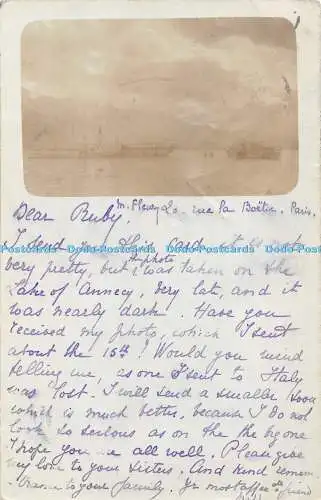 Dear Ruby,
M. Fleury 20, rue La Boëtie, Paris.
I send you this card, it is not
very pretty, but the photo was taken on the
Lake of Annecy, very late, and it
was nearly dark. Have you
received my photo, which I sent
about the 15th? Would you mind
telling me, as one I sent to Italy
was lost. I will send a smaller soon
which is much better, because I do not
look so serious as on the big one
I hope you are all well. Please give
my love to your sisters. And kind
to your family. Yr most affectte friend